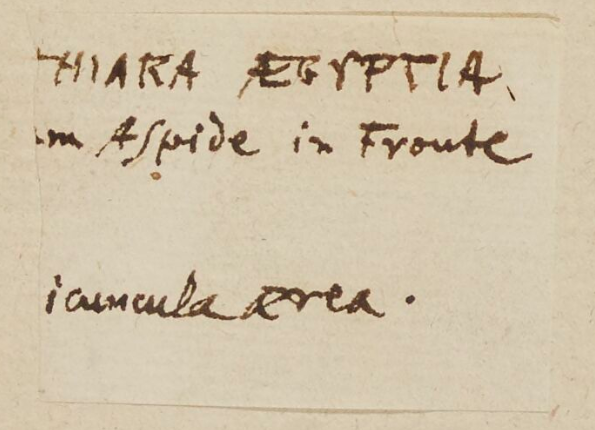 THIARA ÆGYPTIA
um Aspide in Fronte
icuncula ærea.